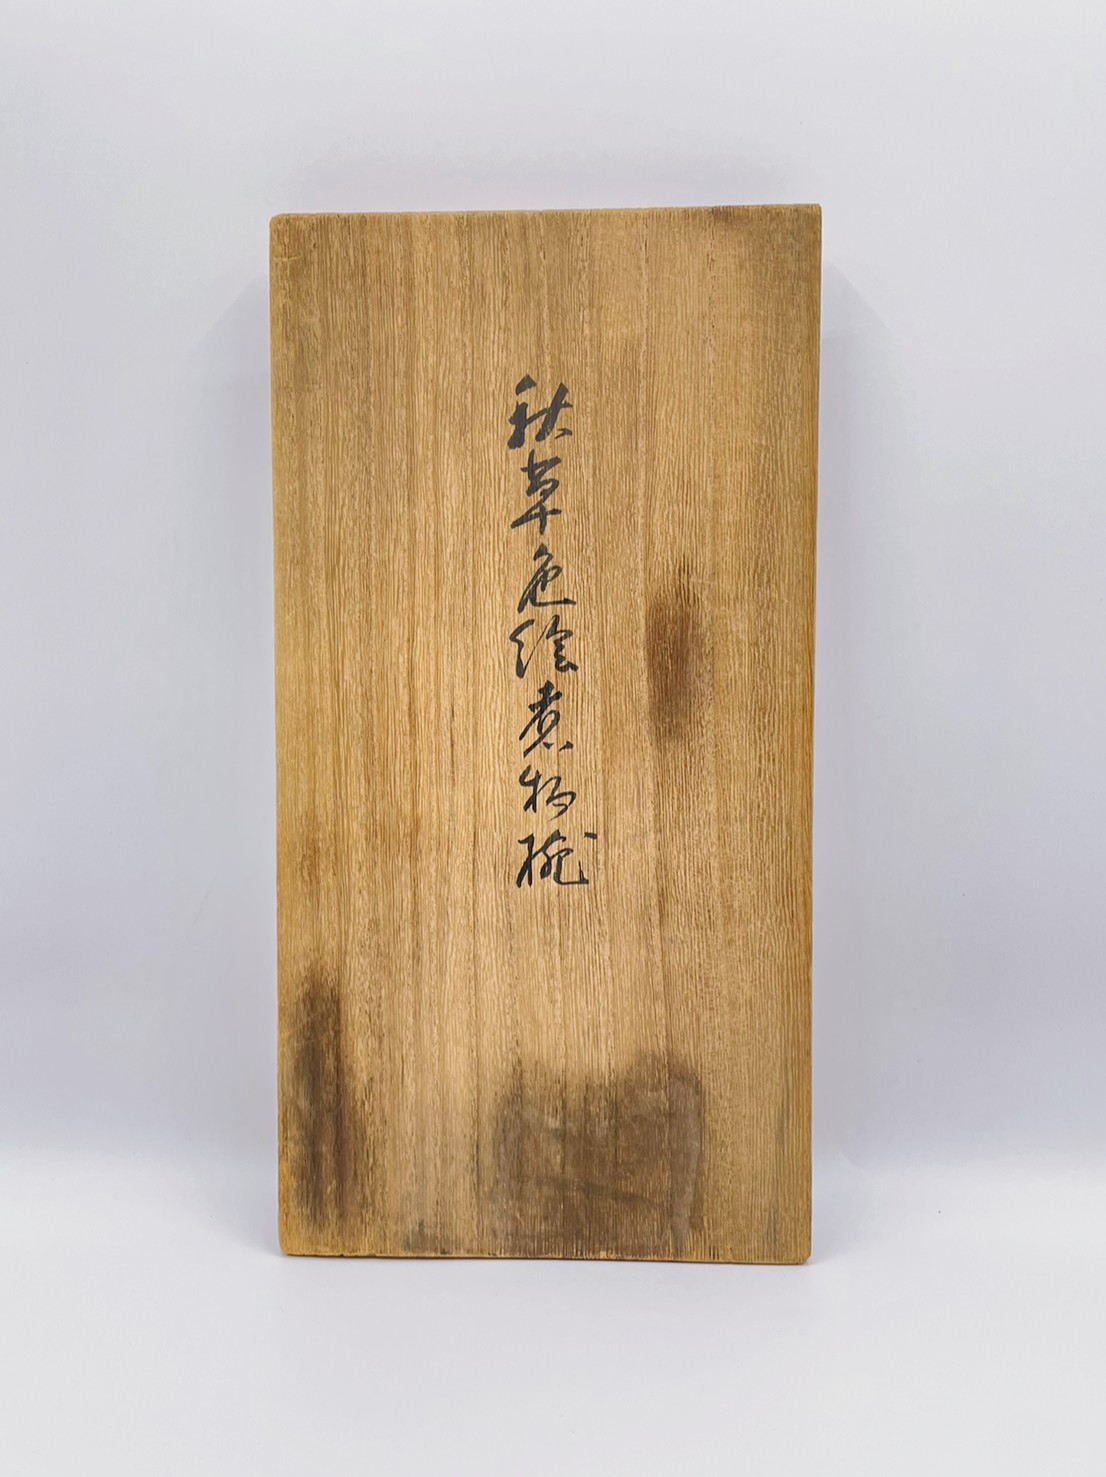 秋草色絵煮物椀